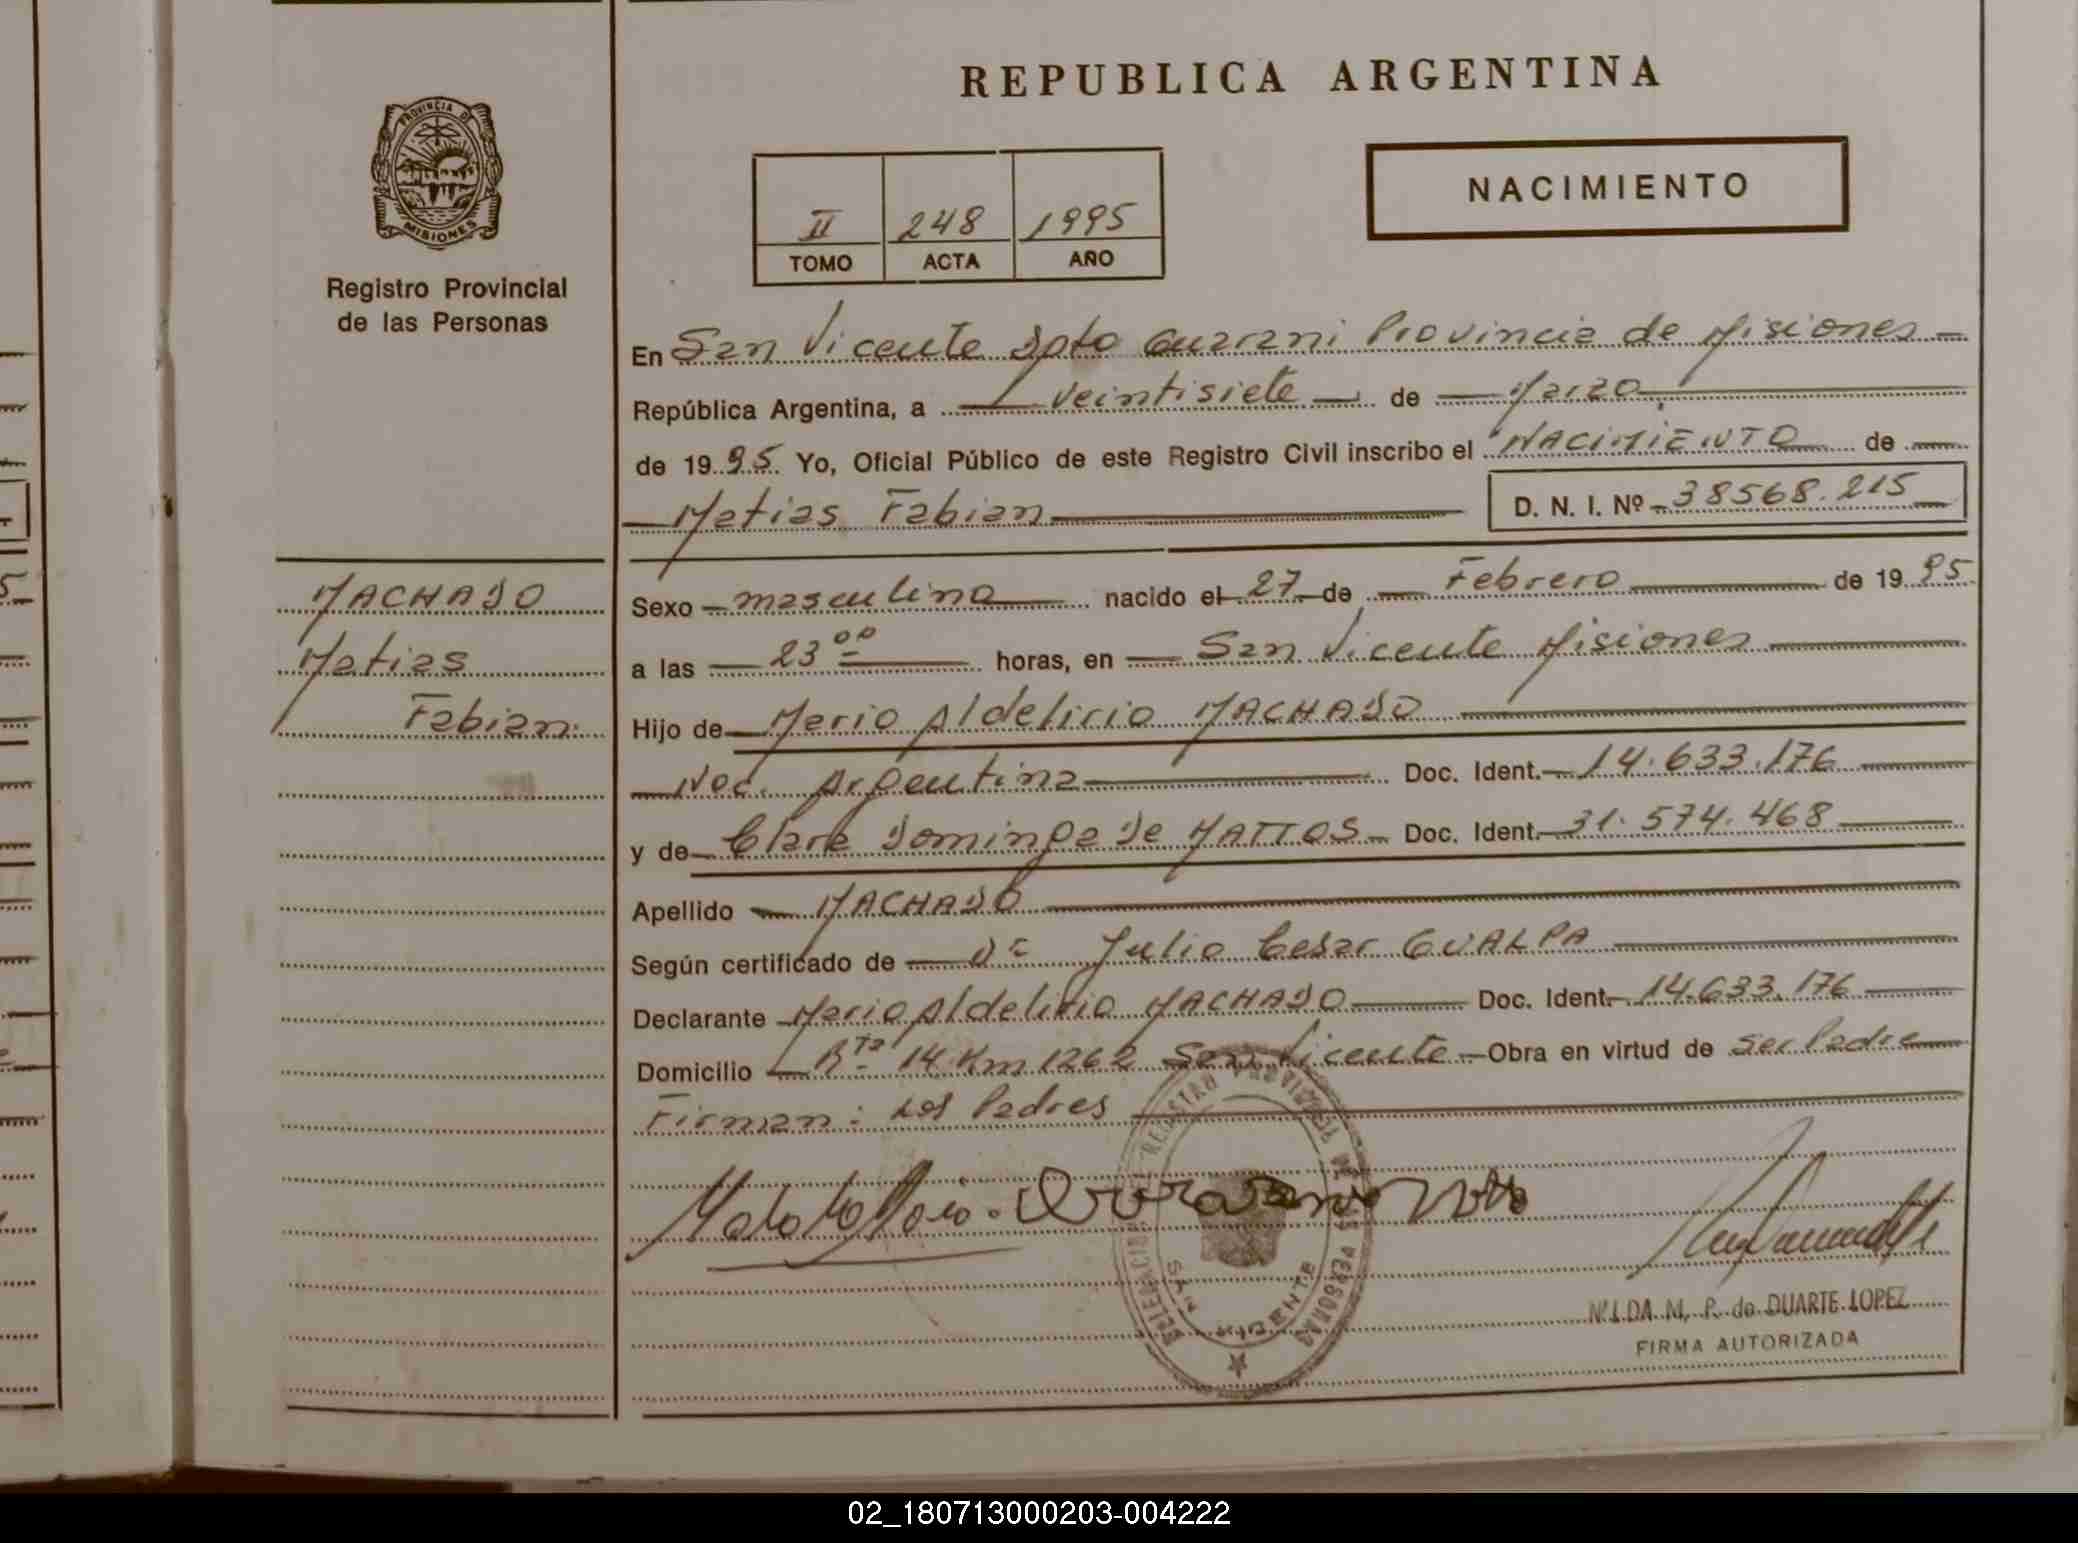 REPUBLICA ARGENTINA
PROVINCIA DE
MISIONES
Registro Provincial
de las Personas
II 248 1995
TOMO ACTA AÑO
NACIMIENTO
En San Vicente Dpto Guarani Provincia de Misiones
República Argentina, a veintisiete de Marzo
de 1995 Yo, Oficial Público de este Registro Civil inscribo el NACIMIENTO de
Matias Fabian
D. N. I. Nº 38568.215
MACHADO
Matias
Fabian
Sexo masculino nacido el 27 de Febrero de 1995
a las 23 00 horas, en San Vicente Misiones
Hijo de Mario Aldelirio MACHADO
Nac. Argentina Doc. Ident. 14.633.176
y de Clara Dominga De MATTOS Doc. Ident. 31.574.468
Apellido MACHADO
Según certificado de Dr Julio Cesar GUALPA
Declarante Mario Aldelirio MACHADO Doc. Ident. 14.633.176
Domicilio Rta 14 Km 1262 San Vicente Obra en virtud de ser Padre
Firman: Los Padres
DELEGACION REGISTRO PROVINCIAL DE LAS PERSONAS
SAN VICENTE
M. P. de DUARTE LOPEZ
FIRMA AUTORIZADA
02_180713000203-004222